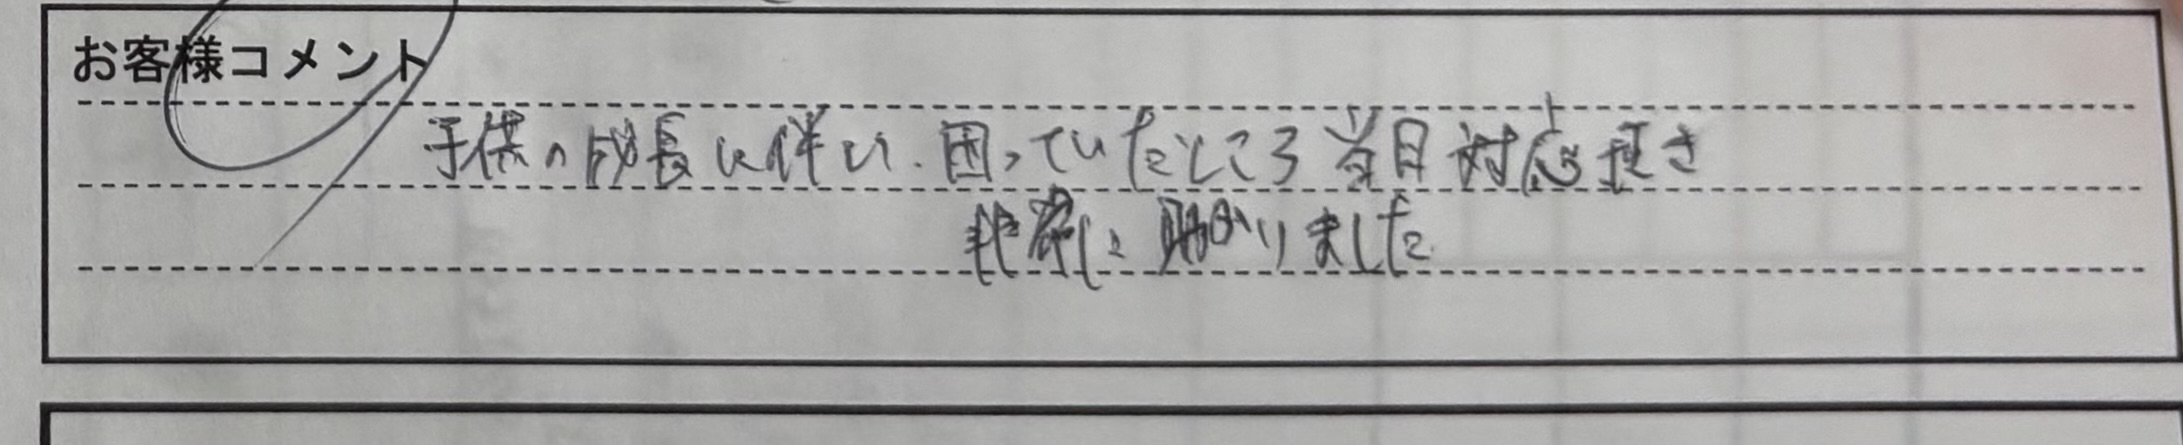 お客様コメント
子供の成長に伴い、困っていたところ当日対応頂き
非常に助かりました